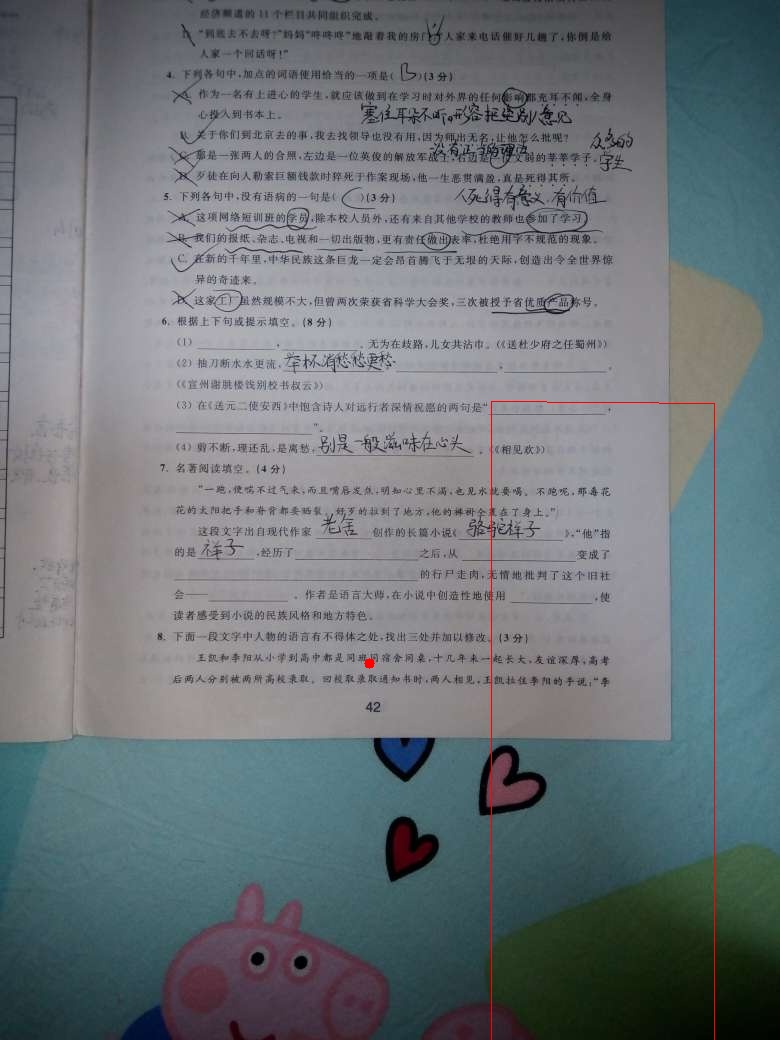 经济频道的11个栏目共同组织完成。
D.“到底去不去呀?”妈妈“咚咚咚”地敲着我的房门,“人家来电话催好几趟了,你倒是给
人家一个回话呀!”
4. 下列各句中,加点的词语使用恰当的一项是( B )(3分)
A. 作为一名有上进心的学生,就应该做到在学习时对外界的任何影响都充耳不闻,全身
心投入到书本上。 塞住耳朵不听,形容拒绝别人意见
B. 关于你们到北京去的事,我去找领导也没有用,因为师出无名,让他怎么批呢?
没有正当的理由 众多的
C. 那是一张两人的合照,左边是一位英俊的解放军战士,右边是一位文弱的莘莘学子。 学生
D. 歹徒在向人勒索巨额钱款时猝死于作案现场,他一生恶贯满盈,真是死得其所。
5. 下列各句中,没有语病的一句是( C )(3分) 人死得有意义,有价值
A. 这项网络短训班的学员,除本校人员外,还有来自其他学校的教师也参加了学习。
B. 我们的报纸、杂志、电视和一切出版物,更有责任做出表率,杜绝用字不规范的现象。
C. 在新的千年里,中华民族这条巨龙一定会昂首腾飞于无垠的天际,创造出令全世界惊
异的奇迹来。
D. 这家工厂虽然规模不大,但曾两次荣获省科学大会奖,三次被授予省优质产品称号。
6. 根据上下句或提示填空。(8分)
(1) , 。无为在歧路,儿女共沾巾。(《送杜少府之任蜀州》)
(2) 抽刀断水水更流,举杯消愁愁更愁 , 。
(《宣州谢朓楼饯别校书叔云》)
(3) 在《送元二使安西》中饱含诗人对远行者深情祝愿的两句是“ ,
”。
(4) 剪不断,理还乱,是离愁,别是一般滋味在心头 。(《相见欢》)
7. 名著阅读填空。(4分)
“一跑,便喘不过气来,而且嘴唇发焦,明知心里不渴,也见水就要喝。不跑呢,那毒花
花的太阳把手和脊背都要晒裂。好歹的拉到了地方,他的裤褂全裹在了身上。”
这段文字出自现代作家 老舍 创作的长篇小说《 骆驼祥子 》,“他”指
的是 祥子 ,经历了 之后,从 变成了
的行尸走肉,无情地批判了这个旧社
会—— 。作者是语言大师,在小说中创造性地使用 ,使
读者感受到小说的民族风格和地方特色。
8. 下面一段文字中人物的语言有不得体之处,找出三处并加以修改。(3分)
王凯和李阳从小学到高中都是同班同宿舍同桌,十几年来一起长大,友谊深厚,高考
后两人分别被两所高校录取。回校取录取通知书时,两人相见,王凯拉住李阳的手说:“李
42